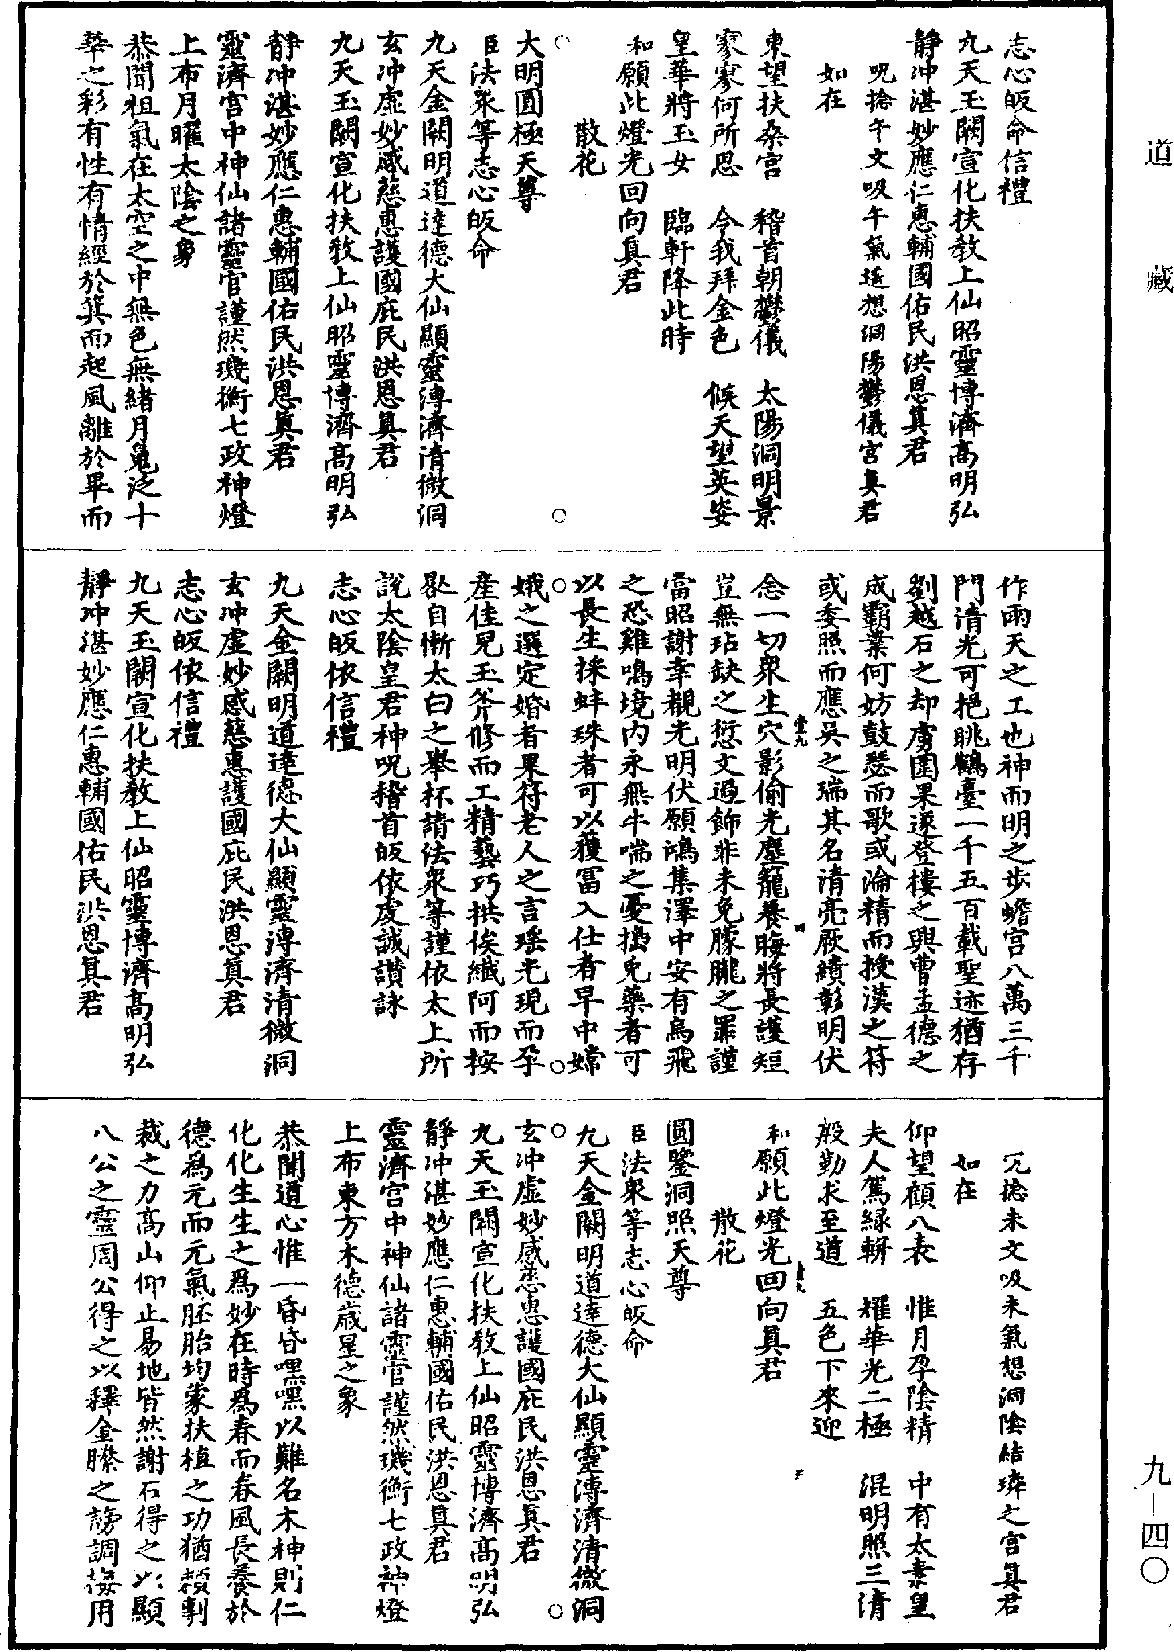 道藏
九—四〇
志心皈命信禮
九天玉闕宣化扶教上仙昭靈博濟高明弘
靜沖湛妙應仁惠輔國佑民洪恩真君
呪捻午文吸午氣遙想洞陽鬱儀宮真君
如在
東望扶桑宮　稽首朝鬱儀　太陽洞明景
寥寥何所思　令我拜金色　候天望英姿
皇華將玉女　臨軒降此時
和願此燈光回向真君
散花
大明圓極天尊
臣法眾等志心皈命
九天金闕明道達德大仙顯靈溥濟清微洞
玄沖虛妙感慈惠護國庇民洪恩真君
九天玉闕宣化扶教上仙昭靈博濟高明弘
靜沖湛妙應仁惠輔國佑民洪恩真君
靈濟宮中神仙諸靈官謹然璣衡七政神燈
上布月曜太陰之象
恭聞祖氣在太空之中無色無緒月鬼泛十
華之彩有性有情經於箕而起風離於畢而
作雨天之工也神而明之步蟾宮八萬三千
門清光可挹眺鶴臺一千五百載聖迹猶存
劉越石之却虜圍果遂登樓之興曹孟德之
成霸業何妨鼓瑟而歌或淪精而授漢之符
或委照而應吳之瑞其名清亮厥績彰明伏
念一切眾生穴影偷光塵籠養晦將長護短
豈無玷缺之愆文過飾非未免朦朧之罪謹
當昭謝幸覩光明伏願鴻集澤中安有烏飛
之恐雞鳴境內永無牛喘之憂擣兔藥者可
以長生採蚌珠者可以獲冨入仕者早中嫦
娥之選定婚者果符老人之言瑤光現而孕
產佳兒玉斧修而工精藝巧拱俟纖阿而按
轡自慚太白之舉杯請法眾等謹依太上所
說太陰皇君神呪稽首皈依虔誠讚詠
志心皈依信禮
九天金闕明道達德大仙顯靈溥濟清微洞
玄沖虛妙感慈惠護國庇民洪恩真君
志心皈依信禮
九天玉闕宣化扶教上仙昭靈博濟高明弘
靜沖湛妙應仁惠輔國佑民洪恩真君
呪捻未文吸未氣想洞陰結璘之宮真君
如在
仰望顧八表　惟月孕陰精　中有太素皇
夫人駕綠輧　耀華光二極　混明照三清
般勤求至道　五色下來迎
和願此燈光回向真君
散花
圓鑒洞照天尊
臣法眾等志心皈命
九天金闕明道達德大仙顯靈溥濟清微洞
玄沖虛妙感慈惠護國庇民洪恩真君
九天玉闕宣化扶教上仙昭靈博濟高明弘
靜沖湛妙應仁惠輔國佑民洪恩真君
靈濟宮中神仙諸靈官謹然璣衡七政神燈
上布東方木德歲星之象
恭聞道心惟一昏昏嘿嘿以難名木神則仁
化化生生之為妙在時為春而春風長養於
德為元而元氣胚胎均蒙扶植之功猶賴剸
裁之力高山仰止易地皆然謝石得之以顯
八公之靈周公得之以釋金縢之謗調梅用